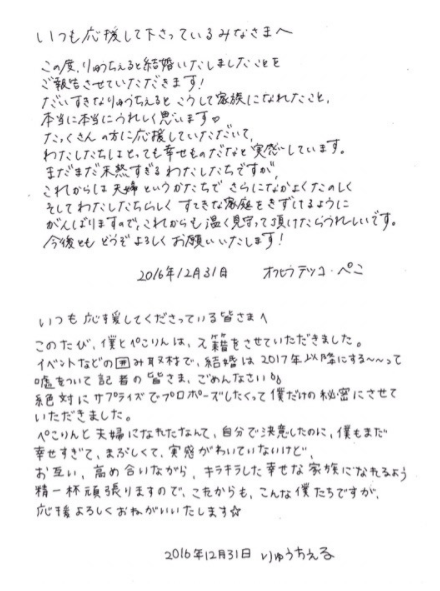 いつも応援して下さっているみなさまへ
この度、りゅうちぇると結婚いたしましたことを
ご報告させていただきます!
だいすきなりゅうちぇると こうして家族になれたこと、
本当に本当にうれしく思います♡
たっくさんの方に応援していただいて、
わたしたちはとっても幸せものだなと実感しています。
まだまだ未熟すぎるわたしたちですが、
これからは夫婦というかたちで さらになかよくたのしく
そしてわたしたちらしく すてきな家庭をきずけるように
がんばりますので、これからも温く見守って頂けたらうれしいです。
今後とも どうぞよろしくお願いいたします!
2016年12月31日 オクヒラテツコ・ぺこ
いつも応援してくださっている皆さまへ
このたび、僕とぺこりんは、入籍をさせていただきました。
イベントなどの囲み取材で、結婚は2017年以降にする〜〜って
嘘をついて記者の皆さま、ごめんなさい
絶対にサプライズでプロポーズしたくって僕だけの秘密にさせて
いただきました。
ぺこりんと夫婦になれたなんて、自分で決意したのに、僕もまだ
幸せすぎて、まぶしくて、実感がわいていないけど、
お互い、高め合いながら、キラキラした幸せな家族になれるよう
精一杯頑張りますので、これからも、こんな僕たちですが、
応援よろしくおねがいいたします☆
2016年12月31日 りゅうちぇる